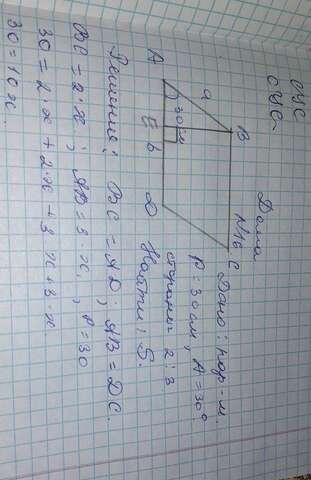 Дома
№16
Дано: пар-м.
P 30 см, A = 30°.
стороны 2:3
Найти: S.
A
a
B
30°
E
b
D
C
Решение: BC = AD; AB = DC.
BC = 2·x; AB = 3 x, P = 30
30 = 2·x + 2·x + 3 x + 3·x.
30 = 10x.